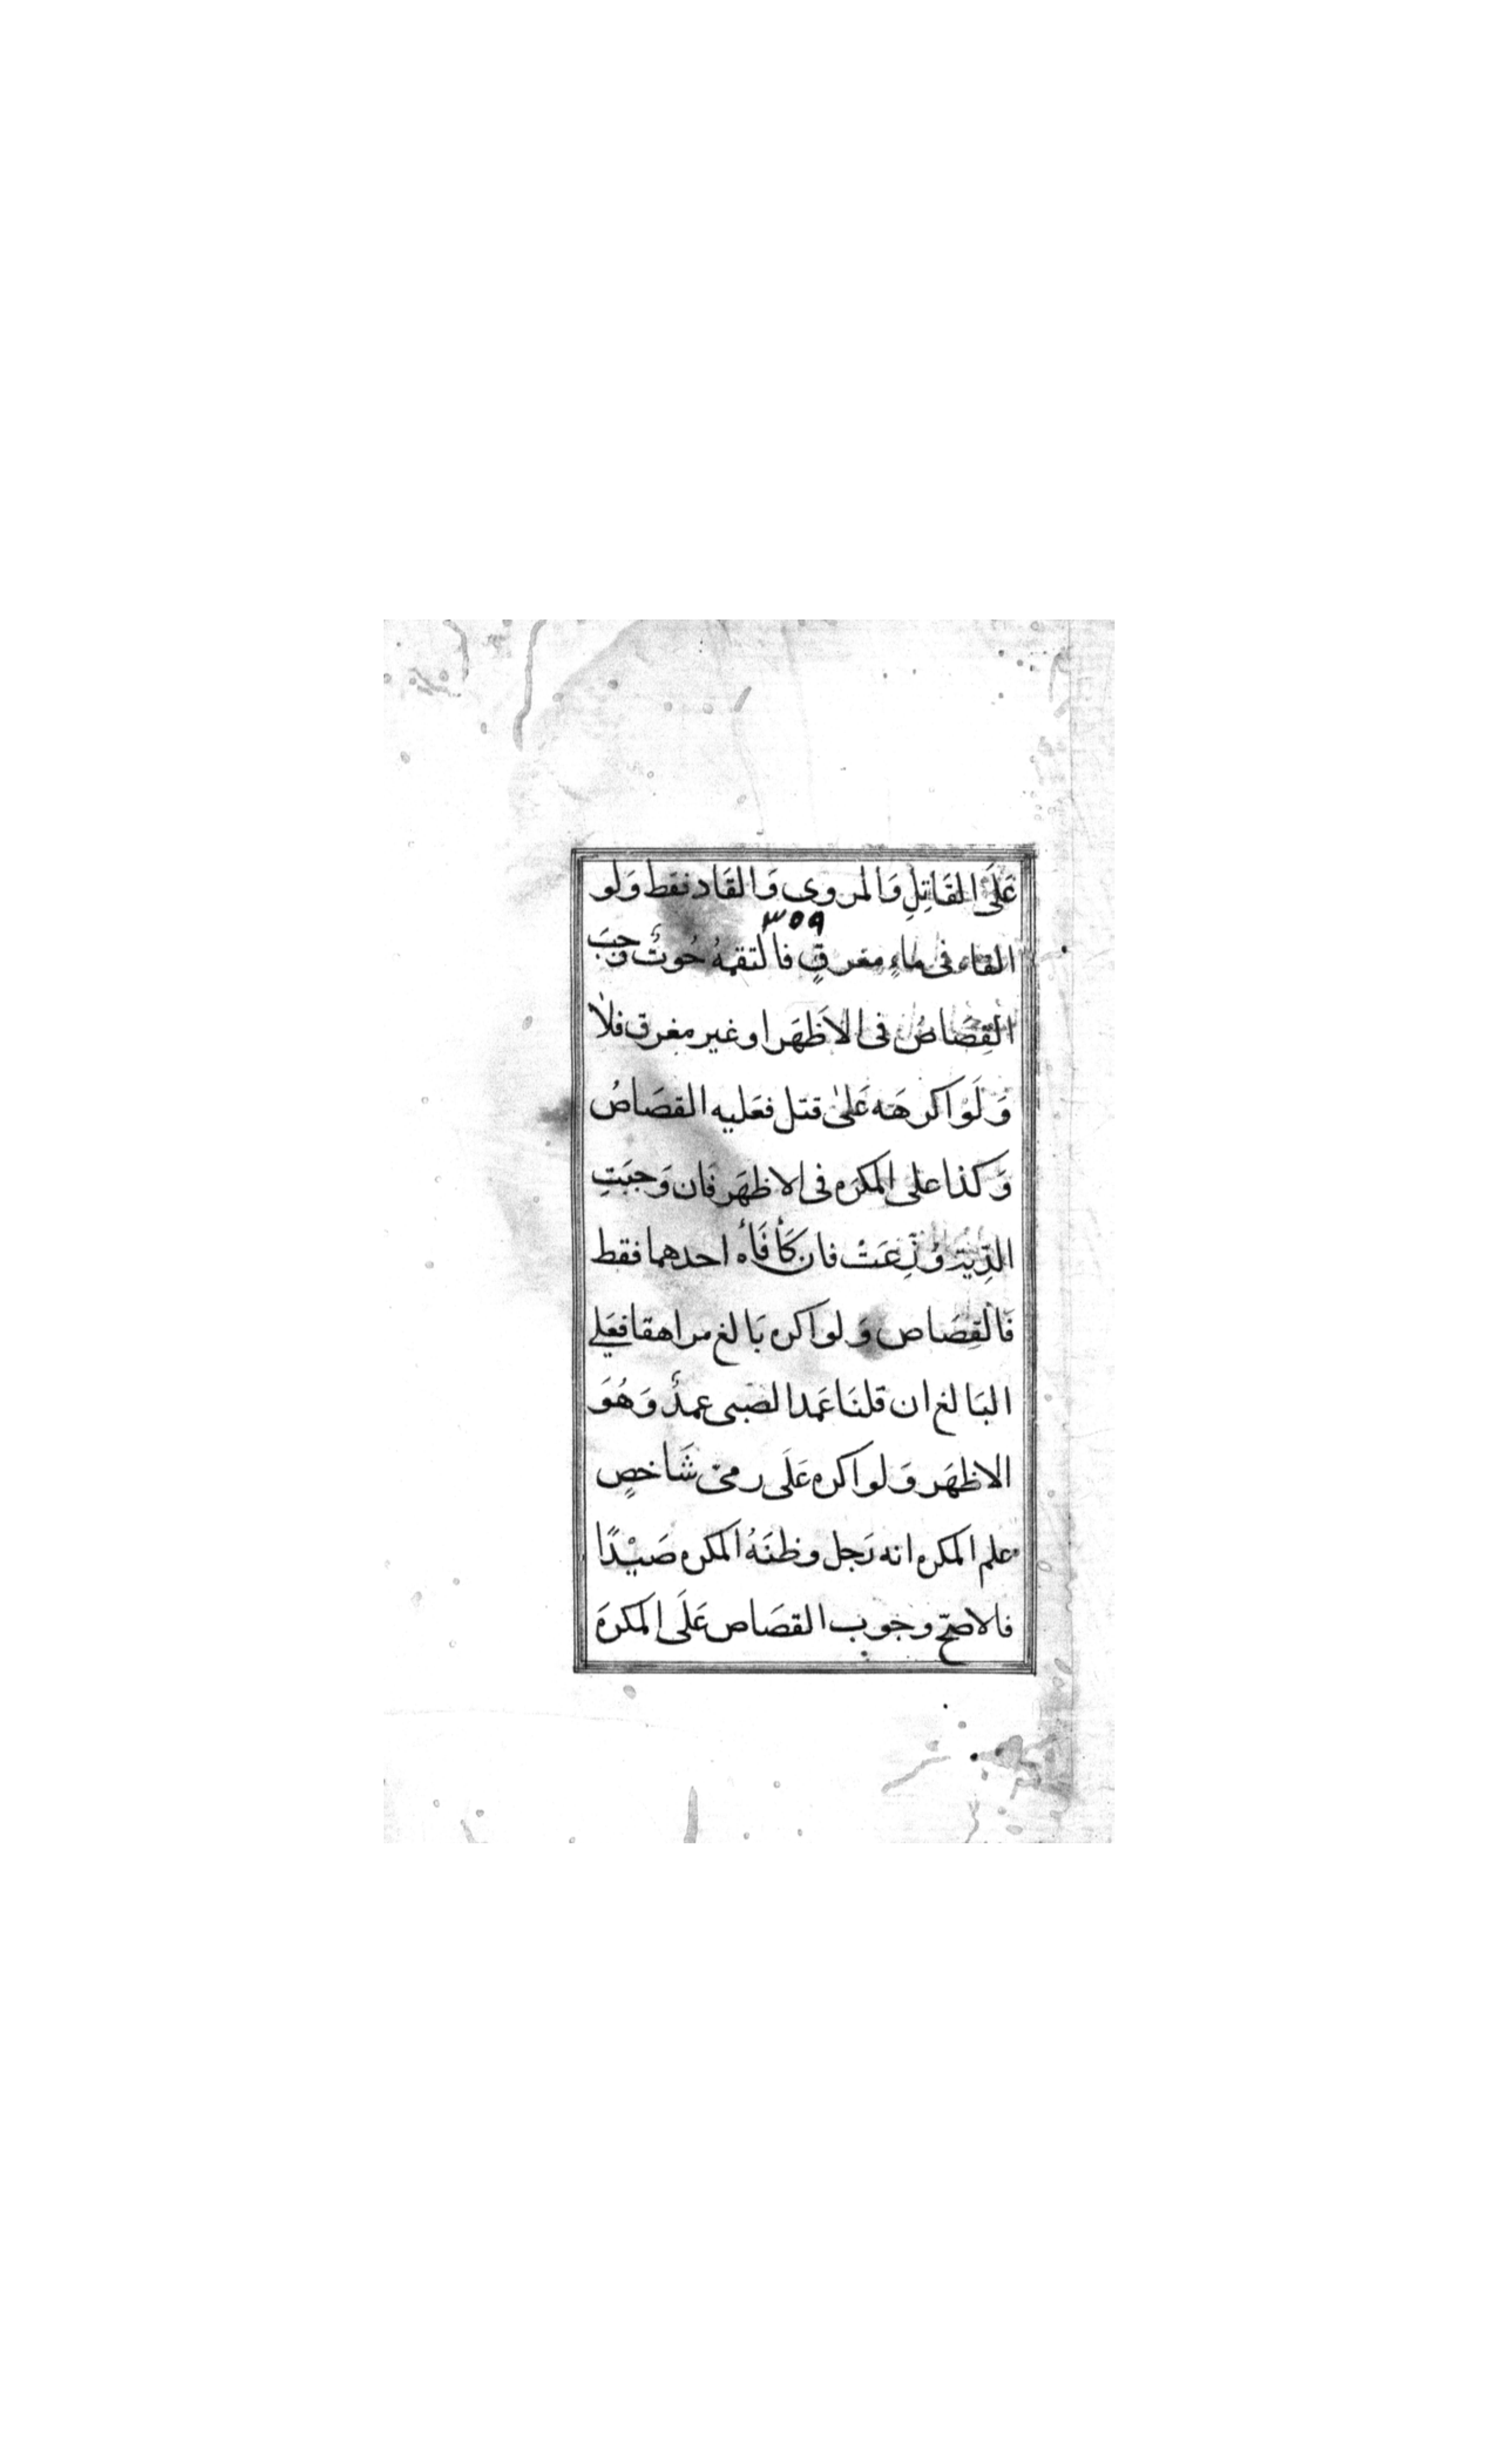 عَلَى القَاتِلِ وَالمروى وَالقَاد فقط وَلو
٣٥٩
القاه فى ماءٍ مغرقٍ فالتقمهُ حُوتٌ وَجَبَ
القِصَاصُ فى الاَظهَر او غير مغرق فلا
وَلَوْ اكرهَه عَلىٰ قتل فعَليه القصَاصُ
وَكذا على المكرَه فى الاظهَر فَان وَجبَتِ
الدِّيَةُ وُزِّعَتْ فان كَأفَأه احدهما فقط
فَالقِصَاص وَلو اكره بَالغ مراهقا فعَلى
البَالغ ان قلنَا عَمد الصَبى عمدٌ وَهُوَ
الاظهَر وَلو اكره عَلَى رمىْ شَاخصٍ
علم المكره انه رَجل وظنَهُ المكره صَيْدًا
فالاصَحّ وجوب القصَاص عَلَى المكرهَ